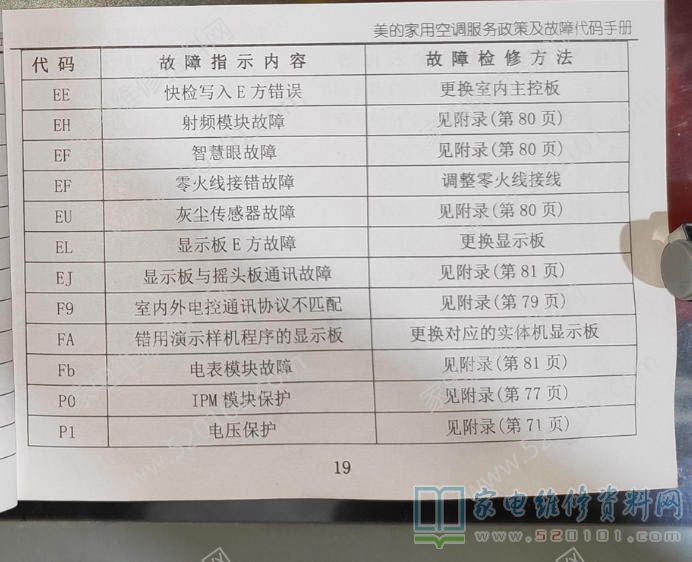 美的家用空调服务政策及故障代码手册
代码 故障指示内容 故障检修方法
EE 快检写入E方错误 更换室内主控板
EH 射频模块故障 见附录(第80页)
EF 智慧眼故障 见附录(第80页)
EF 零火线接错故障 调整零火线接线
EU 灰尘传感器故障 见附录(第80页)
EL 显示板E方故障 更换显示板
EJ 显示板与摇头板通讯故障 见附录(第81页)
F9 室内外电控通讯协议不匹配 见附录(第79页)
FA 错用演示样机程序的显示板 更换对应的实体机显示板
Fb 电表模块故障 见附录(第81页)
P0 IPM模块保护 见附录(第77页)
P1 电压保护 见附录(第71页)
19
家电维修资料网
www.520101.com